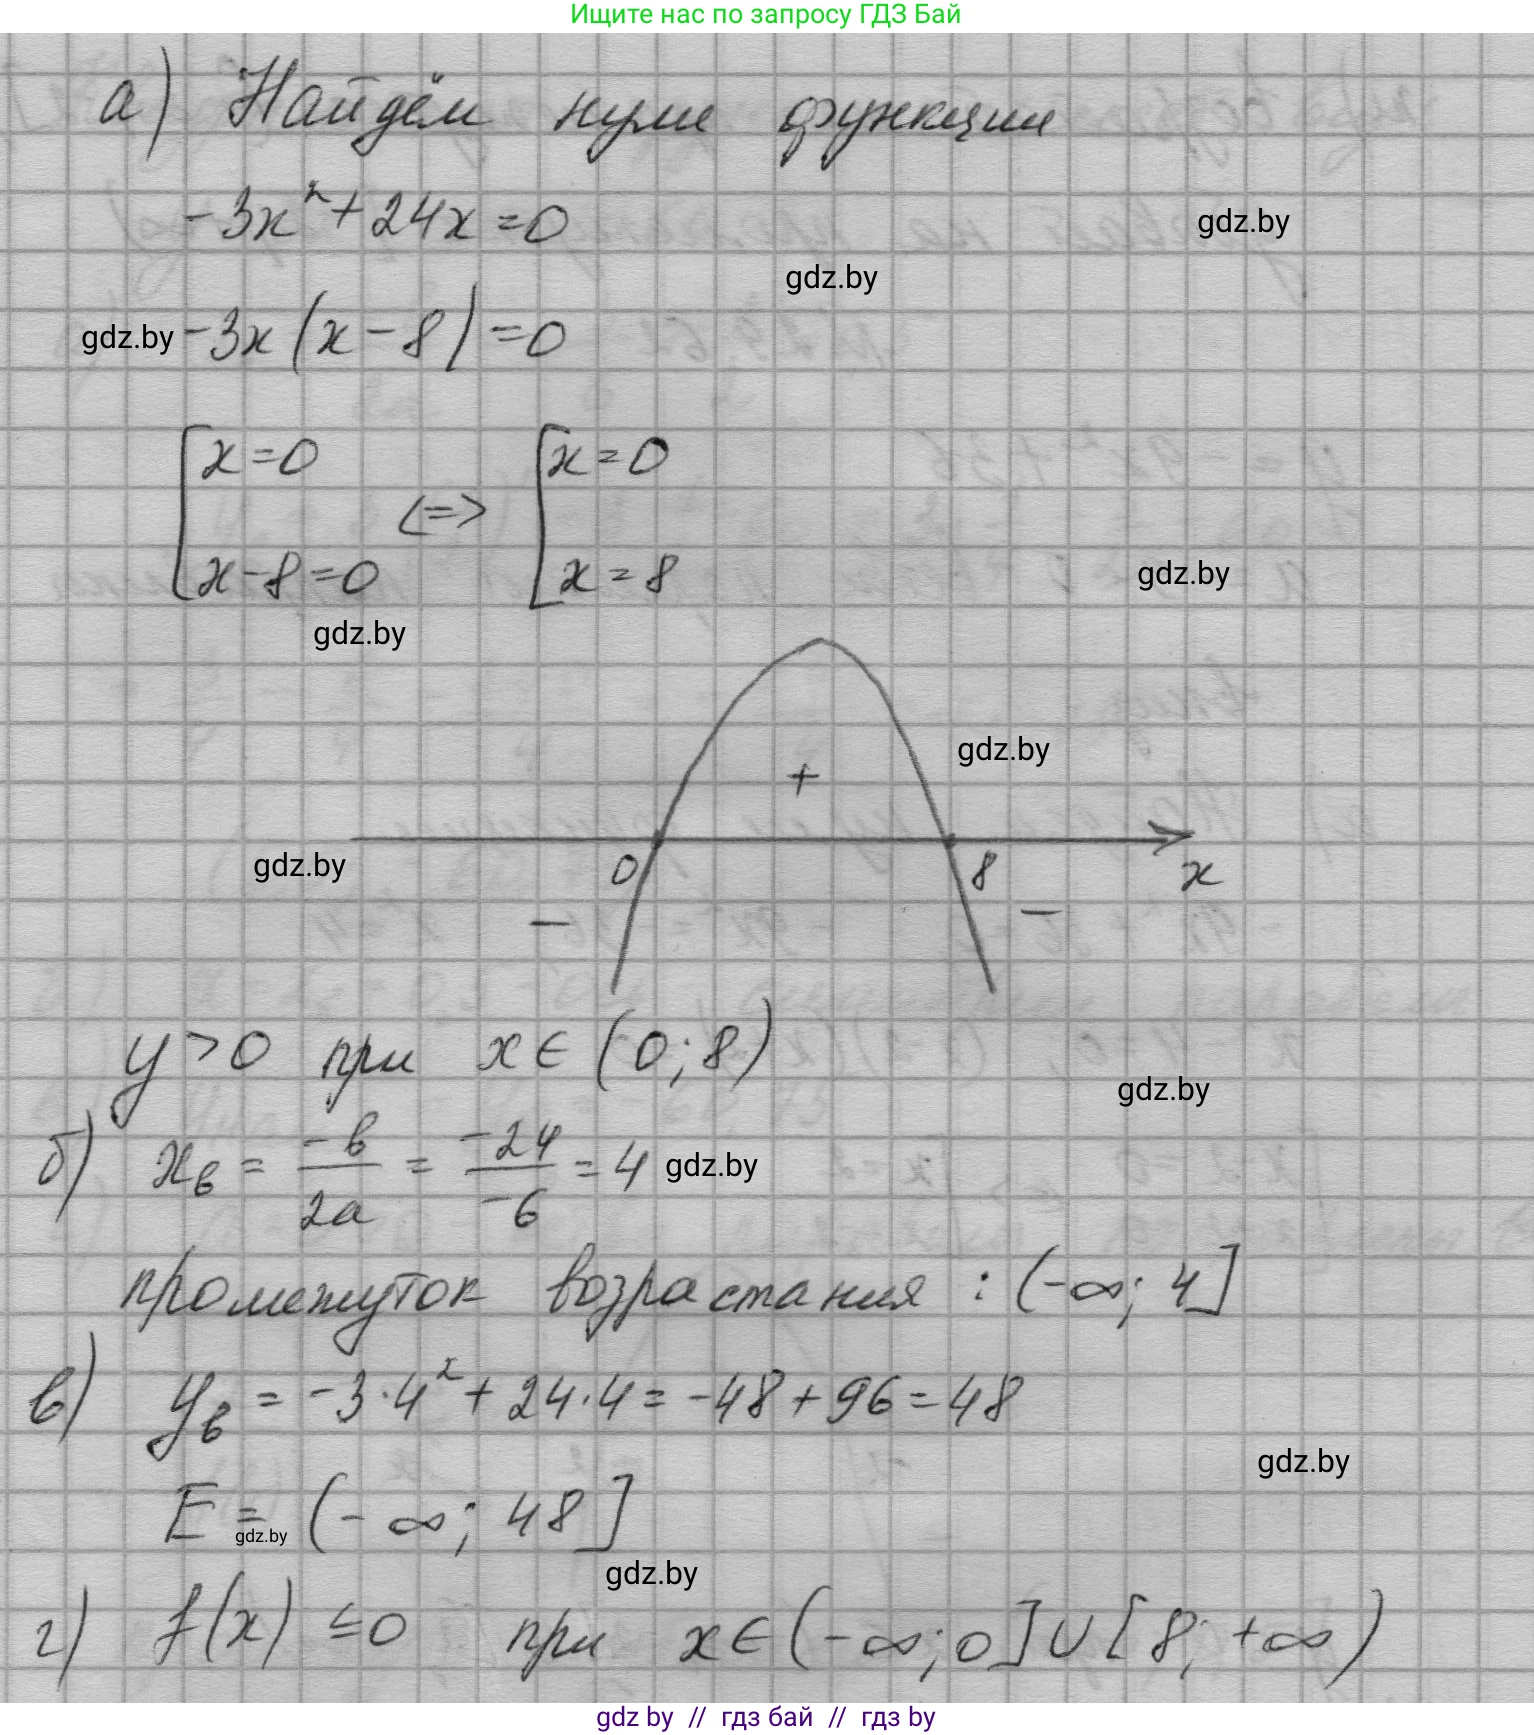 Ищите нас по запросу ГДЗ Бай
а) Найдём нули функции
-3x² + 24x = 0
gdz.by
gdz.by
gdz.by -3x(x - 8) = 0
[x = 0 <=> [x = 0
x - 8 = 0 x = 8
gdz.by
gdz.by
gdz.by
+
gdz.by 0 8 x
- -
y > 0 при x ∈ (0; 8)
gdz.by
б) xв = -b/2a = -24/-6 = 4 gdz.by
промежуток возрастания : (-∞; 4]
в) yв = -3·4² + 24·4 = -48 + 96 = 48
gdz.by
E = (-∞; 48]
gdz.by
gdz.by
г) f(x) ≤ 0 при x ∈ (-∞; 0] ∪ [8; +∞)
gdz by // гдз бай // гдз by